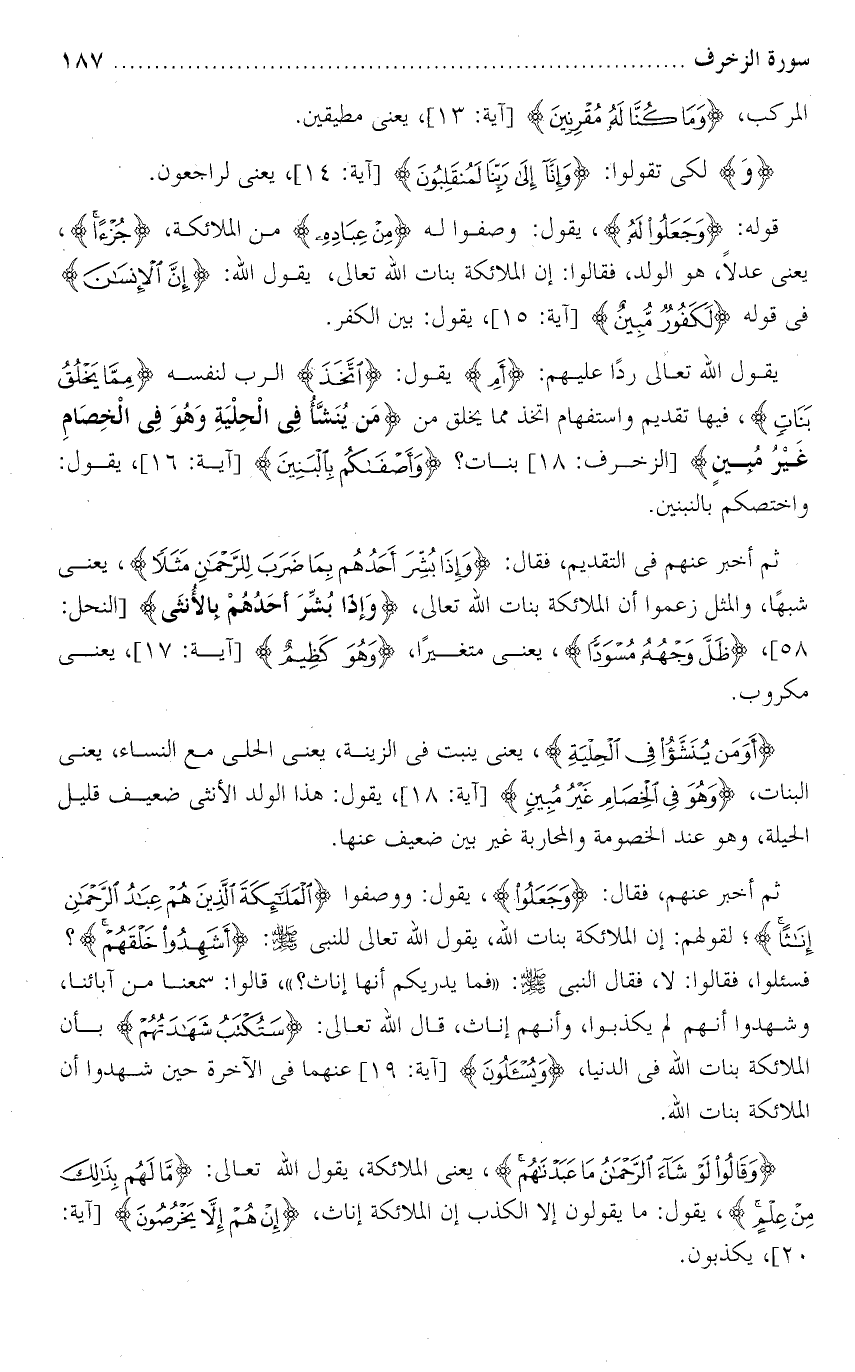 سورة الزخرف ........................................................................ ١٨٧
المركب، ﴿وَمَا كُنَّا لَهُ مُقْرِنِينَ﴾ [آية: ١٣]، يعنى مطيقين.
﴿وَ﴾ لكى تقولوا: ﴿وَإِنَّآ إِلَىٰ رَبِّنَا لَمُنقَلِبُونَ﴾ [آية: ١٤]، يعنى لراجعون.
قوله: ﴿وَجَعَلُوا۟ لَهُ﴾، يقول: وصفوا له ﴿مِنْ عِبَادِهِۦ﴾ من الملائكة، ﴿جُزْءًا ۚ﴾،
يعنى عدلاً، هو الولد، فقالوا: إن الملائكة بنات الله تعالى، يقول الله: ﴿إِنَّ ٱلْإِنسَـٰنَ﴾
فى قوله ﴿لَكَفُورٌ مُّبِينٌ﴾ [آية: ١٥]، يقول: بين الكفر.
يقول الله تعالى ردًا عليهم: ﴿أَمِ﴾ يقول: ﴿ٱتَّخَذَ﴾ الرب لنفسه ﴿مِمَّا يَخْلُقُ
بَنَاتٍ﴾، فيها تقديم واستفهام اتخذ مما يخلق من ﴿مَن يُنَشَّأُ فِى الْحِلْيَةِ وَهُوَ فِى الْخِصَامِ
غَيْرُ مُبِينٍ﴾ [الزخرف: ١٨] بنات؟ ﴿وَأَصْفَىٰكُم بِٱلْبَنِينَ﴾ [آية: ١٦]، يقول:
واختصكم بالنبنين.
ثم أخبر عنهم فى التقديم، فقال: ﴿وَإِذَا بُشِّرَ أَحَدُهُم بِمَا ضَرَبَ لِلرَّحْمَـٰنِ مَثَلًا﴾، يعنى
شبهًا، والمثل زعموا أن الملائكة بنات الله تعالى، ﴿وَإِذَا بُشِّرَ أَحَدُهُمْ بِالأُنثَى﴾ [النحل:
٥٨]، ﴿ظَلَّ وَجْهُهُۥ مُسْوَدًّا﴾، يعنى متغيرًا، ﴿وَهُوَ كَظِيمٌ﴾ [آية: ١٧]، يعنى
مكروب.
﴿أَوَمَن يُنَشَّؤُا۟ فِى ٱلْحِلْيَةِ﴾، يعنى ينبت فى الزينة، يعنى الحلى مع النساء، يعنى
البنات، ﴿وَهُوَ فِى ٱلْخِصَامِ غَيْرُ مُبِينٍ﴾ [آية: ١٨]، يقول: هذا الولد الأنثى ضعيف قليل
الحيلة، وهو عند الخصومة والمحاربة غير بين ضعيف عنها.
ثم أخبر عنهم، فقال: ﴿وَجَعَلُوا۟﴾، يقول: ووصفوا ﴿ٱلْمَلَـٰٓئِكَةَ ٱلَّذِينَ هُمْ عِبَـٰدُ ٱلرَّحْمَـٰنِ
إِنَـٰثًا ۚ﴾؛ لقولهم: إن الملائكة بنات الله، يقول الله تعالى للنبى ﷺ: ﴿أَشَهِدُوا۟ خَلْقَهُمْ ۚ﴾؟
فسئلوا، فقالوا: لا، فقال النبى ﷺ: «فما يدريكم أنها إناث؟»، قالوا: سمعنا من آبائنا،
وشهدوا أنهم لم يكذبوا، وأنهم إناث، قال الله تعالى: ﴿سَتُكْتَبُ شَهَـٰدَتُهُمْ﴾ بأن
الملائكة بنات الله فى الدنيا، ﴿وَيُسْـَٔلُونَ﴾ [آية: ١٩] عنهما فى الآخرة حين شهدوا أن
الملائكة بنات الله.
﴿وَقَالُوا۟ لَوْ شَآءَ ٱلرَّحْمَـٰنُ مَا عَبَدْنَـٰهُم ۗ﴾، يعنى الملائكة، يقول الله تعالى: ﴿مَّا لَهُم بِذَٰلِكَ
مِنْ عِلْمٍ ۖ﴾، يقول: ما يقولون إلا الكذب إن الملائكة إناث، ﴿إِنْ هُمْ إِلَّا يَخْرُصُونَ﴾ [آية:
٢٠]، يكذبون.